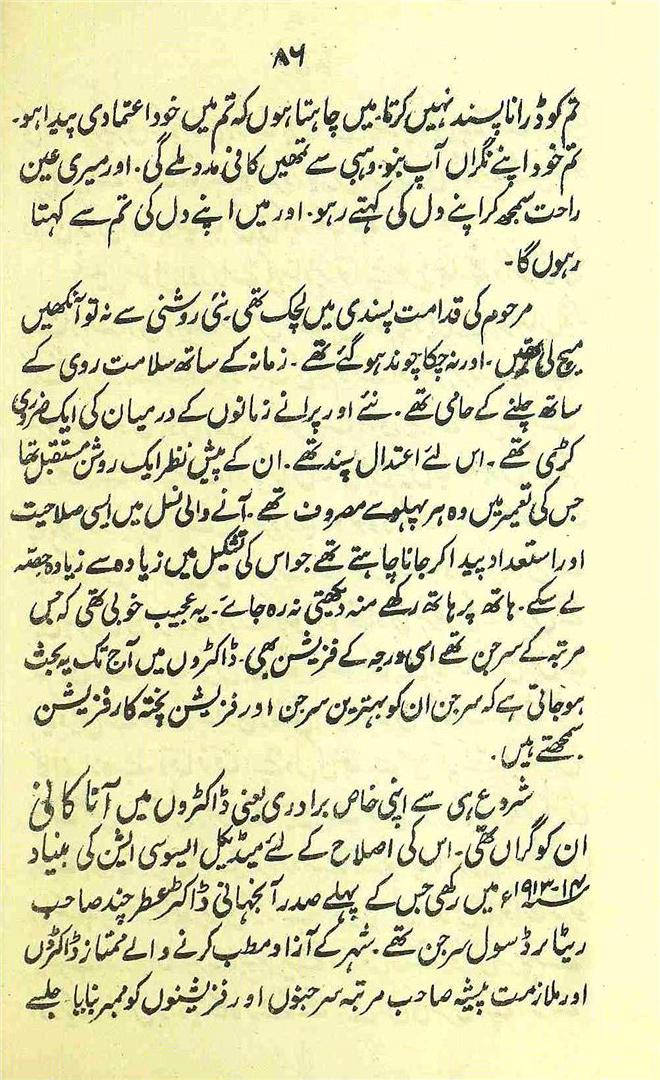 ۸۶
تم کو ڈرانا پسند نہیں کرتا۔ میں چاہتا ہوں کہ تم میں خود اعتمادی پیدا ہو۔
تم خود اپنے نگراں آپ بنو۔ وہبی سے تمھیں کافی مدد ملے گی۔ اور میری عین
راحت سمجھ کر اپنے دل کی کہتے رہو۔ اور میں اپنے دل کی تم سے کہتا
رہوں گا۔
مرحوم کی قدامت پسندی میں لچک تھی۔ نئی روشنی سے نہ تو آنکھیں
میچ لی تھیں۔ اور نہ چکا چوند ہو گئے تھے۔ زمانہ کے ساتھ سلامت روی کے
ساتھ چلنے کے حامی تھے۔ نئے اور پرانے زمانوں کے درمیان کی ایک ضروری
کڑی تھے۔ اس لئے اعتدال پسند تھے۔ ان کے پیش نظر ایک روشن مستقبل تھا
جس کی تعمیر میں وہ ہر پہلو سے مصروف تھے۔ آنے والی نسل میں ایسی صلاحیت
اور استعداد پیدا کر جانا چاہتے تھے جو اس کی تشکیل میں زیادہ سے زیادہ حصہ
لے سکے۔ ہاتھ پر ہاتھ رکھے منہ دیکھتی نہ رہ جائے۔ یہ عجیب خوبی تھی کہ جس
مرتبہ کے سرجن تھے اسی درجہ کے فزیشن بھی۔ ڈاکٹروں میں آج تک یہ بحث
ہو جاتی ہے کہ سرجن ان کو بہترین سرجن اور فزیشن پختہ کار فزیشن
سمجھتے ہیں۔
شروع ہی سے اپنی خاص برادری یعنی ڈاکٹروں میں آنا کانی
ان کو گراں تھی۔ اس کی اصلاح کے لئے میڈیکل ایسوسی ایشن کی بنیاد
۱۴-۱۹۱۳ء میں رکھی جس کے پہلے صدر آنجہانی ڈاکٹر عطر چند صاحب
ریٹائرڈ سول سرجن تھے۔ شہر کے آزاد مطب کرنے والے ممتاز ڈاکٹروں
اور ملازمت پیشہ صاحب مرتبہ سرجنوں اور فزیشنوں کو ممبر بنایا جلسے